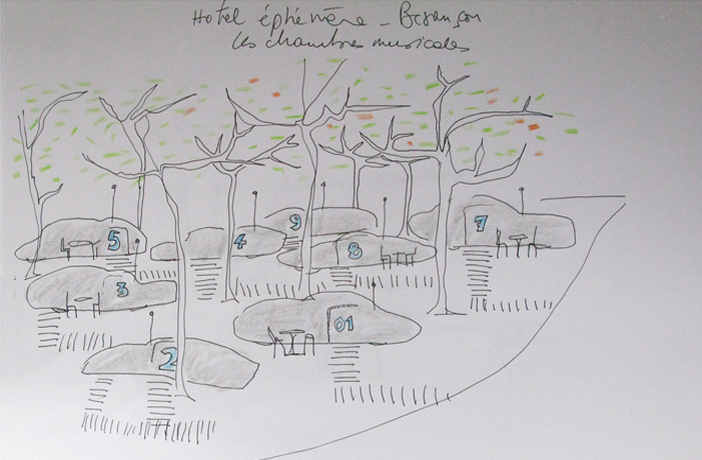 Hotel éphémère - Besançon
les chambres musicales
5
4
9
8
7
3
01
2